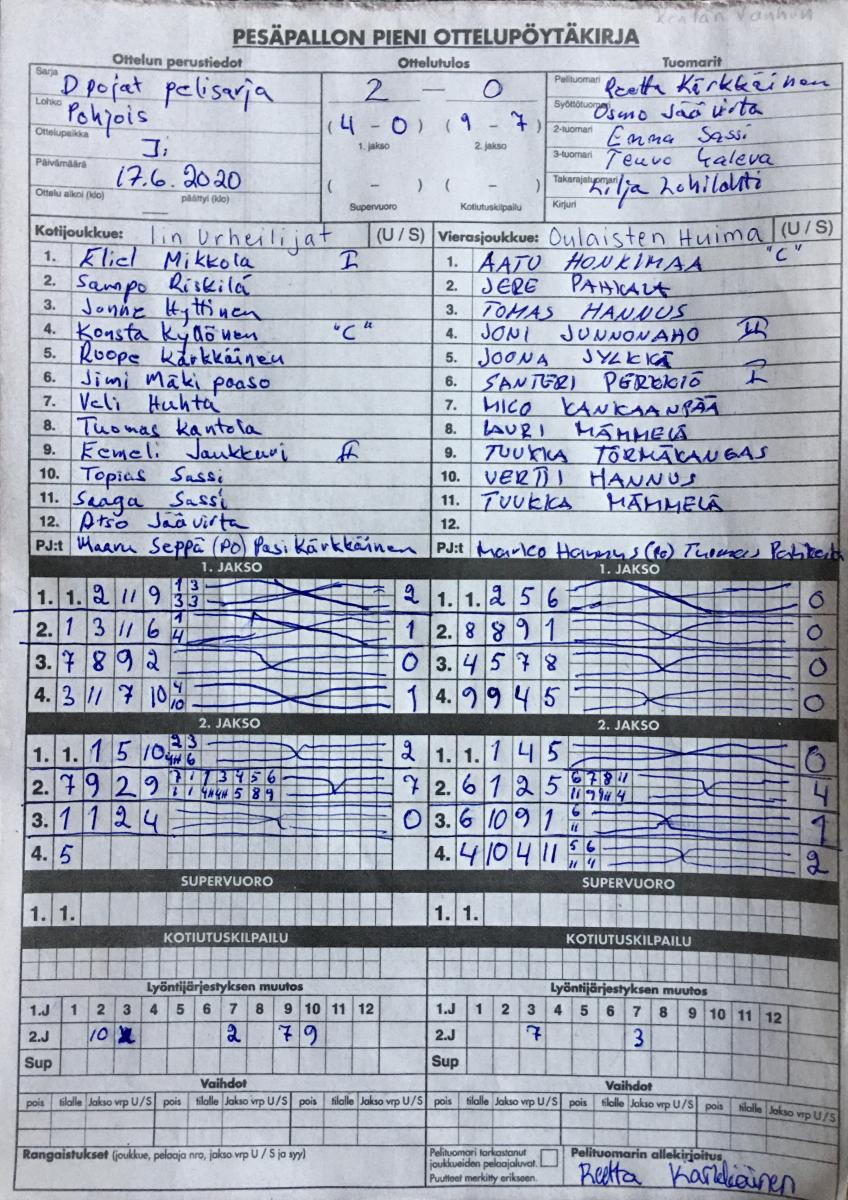 Kentän Vanhin
PESÄPALLON PIENI OTTELUPÖYTÄKIRJA
Ottelun perustiedot Ottelutulos Tuomarit
Sarja D pojat pelisarja
Lohko Pohjois
Ottelupaikka Ii
Päivämäärä 17.6.2020
Ottelu alkoi (klo) päättyi (klo)
2 — 0
(4 - 0) (9 - 7)
1. jakso 2. jakso
( - ) ( - )
Supervuoro Kotiutuskilpailu
Pelituomari Reetta Kärkkäinen
Syöttötuomari Osmo Jäävirta
2-tuomari Emma Sassi
3-tuomari Teuvo Galeva
Takarajatuomari Lilja Lohilahti
Kirjuri
Kotijoukkue: Iin Urheilijat (U / S)
1. Eliel Mikkola I
2. Sampo Riskilä
3. Jonne Hyttinen
4. Konsta Kyllönen "C"
5. Roope Kärkkäinen
6. Jimi Mäkipaaso
7. Veli Huhta
8. Tuomas Kantola
9. Eemeli Jaukkuri II
10. Topias Sassi
11. Saaga Sassi
12. Atso Jäävirta
PJ:t Maaru Seppä (PO) Pasi Kärkkäinen
Vierasjoukkue: Oulaisten Huima (U / S)
1. AATU HONKIMAA "C"
2. JERE PAHKALA
3. TOMAS HANNUS
4. JONI JUNNONAHO II
5. JOONA JYLKKÄ
6. SANTERI PERKKIÖ I
7. MICO KANKAANPÄÄ
8. LAURI MÄMMELÄ
9. TUUKKA TÖRMÄKANGAS
10. VERTTI HANNUS
11. TUUKKA MÄMMELÄ
12.
PJ:t Marko Hannus (PO) Tuomas Pahkala
1. JAKSO
1. 1. 2 11 9 1 3 2
3 3
2. 1 3 11 6 1 1
4
3. 7 8 9 2 0
4. 3 11 7 10 4 1
10
2. JAKSO
1. 1. 1 5 10 2 3 2
4H 6
2. 7 9 2 9 7 1 1 3 4 5 6 7
1 1 4H 4H 5 8 9
3. 1 1 2 4 0
4. 5
SUPERVUORO
1. 1.
KOTIUTUSKILPAILU
1. JAKSO
1. 1. 2 5 6 0
2. 8 8 9 1 0
3. 4 5 7 8 0
4. 9 9 4 5 0
2. JAKSO
1. 1. 1 4 5 0
2. 6 1 2 5 6 7 8 11 4
11 9 9H 4
3. 6 10 9 1 6 1
11
4. 4 10 4 11 5 6 2
11 4
SUPERVUORO
1. 1.
KOTIUTUSKILPAILU
Lyöntijärjestyksen muutos
1.J 1 2 3 4 5 6 7 8 9 10 11 12
2.J 10 2 7 9
Sup
Vaihdot
pois tilalle Jakso vrp U / S pois tilalle Jakso vrp U / S pois tilalle Jakso vrp U / S
Lyöntijärjestyksen muutos
1.J 1 2 3 4 5 6 7 8 9 10 11 12
2.J 7 3
Sup
Vaihdot
pois tilalle Jakso vrp U / S pois tilalle Jakso vrp U / S pois tilalle Jakso vrp U / S
Rangaistukset (joukkue, pelaaja nro, jakso vrp U / S ja syy)
Pelituomari tarkastanut
joukkueiden pelaajaluvat.
Puutteet merkitty erikseen.
Pelituomarin allekirjoitus
Reetta Kärkkäinen